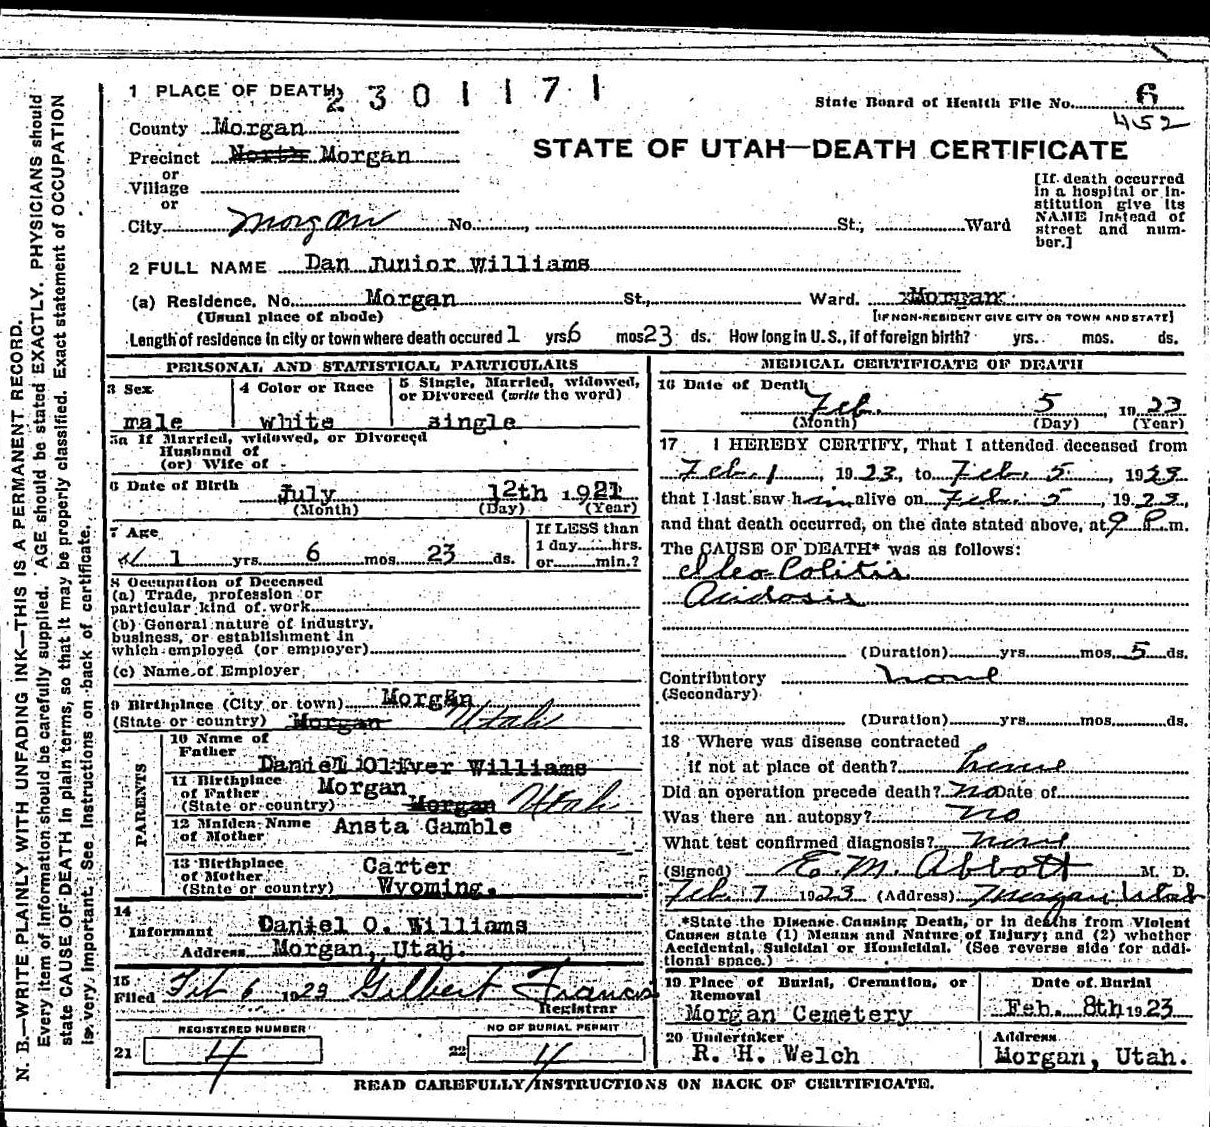 1 PLACE OF DEATH 2301171
State Board of Health File No. 6
452
County Morgan
Precinct North Morgan
or
Village
or
City Morgan No. , St., Ward
STATE OF UTAH—DEATH CERTIFICATE
[If death occurred
in a hospital or in-
stitution give its
NAME instead of
street and num-
ber.]
2 FULL NAME Dan Junior Williams
(a) Residence. No. Morgan St., Ward. Morgan
(Usual place of abode) [IF NON-RESIDENT GIVE CITY OR TOWN AND STATE]
Length of residence in city or town where death occured 1 yrs 6 mos 23 ds. How long in U.S., if of foreign birth? yrs. mos. ds.
PERSONAL AND STATISTICAL PARTICULARS
3 Sex
male
4 Color or Race
white
5 Single, Married, widowed,
or Divorced (write the word)
single
5a If Married, widowed, or Divorced
Husband of
(or) Wife of -
6 Date of Birth
July 12th 1921
(Month) (Day) (Year)
7 Age
1 yrs 6 mos 23 ds.
If LESS than
1 day hrs.
or min.?
8 Occupation of Deceased
(a) Trade, profession or
particular kind of work
(b) General nature of industry,
business, or establishment in
which employed (or employer)
(c) Name of Employer
9 Birthplace (City or town) Morgan
(State or country) Morgan Utah
PARENTS
10 Name of
Father
Daniel Oliver Williams
11 Birthplace
of Father Morgan
(State or country) Morgan Utah
12 Maiden Name
of Mother Ansta Gamble
13 Birthplace
of Mother Carter
(State or country) Wyoming.
14
Informant Daniel O. Williams
Address Morgan, Utah.
15
Filed Feb 6 1923 Gilbert Francis
Registrar
REGISTERED NUMBER
21 4
NO OF BURIAL PERMIT
22 4
MEDICAL CERTIFICATE OF DEATH
16 Date of Death
Feb. 5, 1923
(Month) (Day) (Year)
17 I HEREBY CERTIFY, That I attended deceased from
Feb. 1, 1923, to Feb. 5, 1923
that I last saw him alive on Feb. 5, 1923,
and that death occurred, on the date stated above, at 9 P.m.
The CAUSE OF DEATH* was as follows:
Ileo Colitis
Acidosis
(Duration) yrs mos 5 ds.
Contributory none
(Secondary)
(Duration) yrs mos ds.
18 Where was disease contracted
if not at place of death? home
Did an operation precede death? no Date of
Was there an autopsy? no
What test confirmed diagnosis? none
(Signed) E. M. Abbott M. D.
Feb 7 1923 (Address) Morgan Utah
*State the Disease Causing Death, or in deaths from Violent
Causes state (1) Means and Nature of Injury; and (2) whether
Accidental, Suicidal or Homicidal. (See reverse side for addi-
tional space.)
19 Place of Burial, Cremation, or
Removal
Morgan Cemetery
Date of Burial
Feb. 8th 1923
20 Undertaker
R. H. Welch
Address
Morgan, Utah.
READ CAREFULLY INSTRUCTIONS ON BACK OF CERTIFICATE.
N. B.—WRITE PLAINLY WITH UNFADING INK—THIS IS A PERMANENT RECORD.
Every item of information should be carefully supplied. AGE should be stated EXACTLY. PHYSICIANS should
state CAUSE OF DEATH in plain terms, so that it may be properly classified. Exact statement of OCCUPATION
is very important. See instructions on back of certificate.